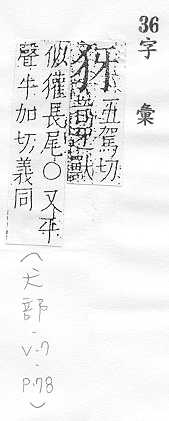 36 字彙
犽 五駕切
音迓獸
似獾長尾○又平
聲牛加切義同
(犬部.V.7.P.78)